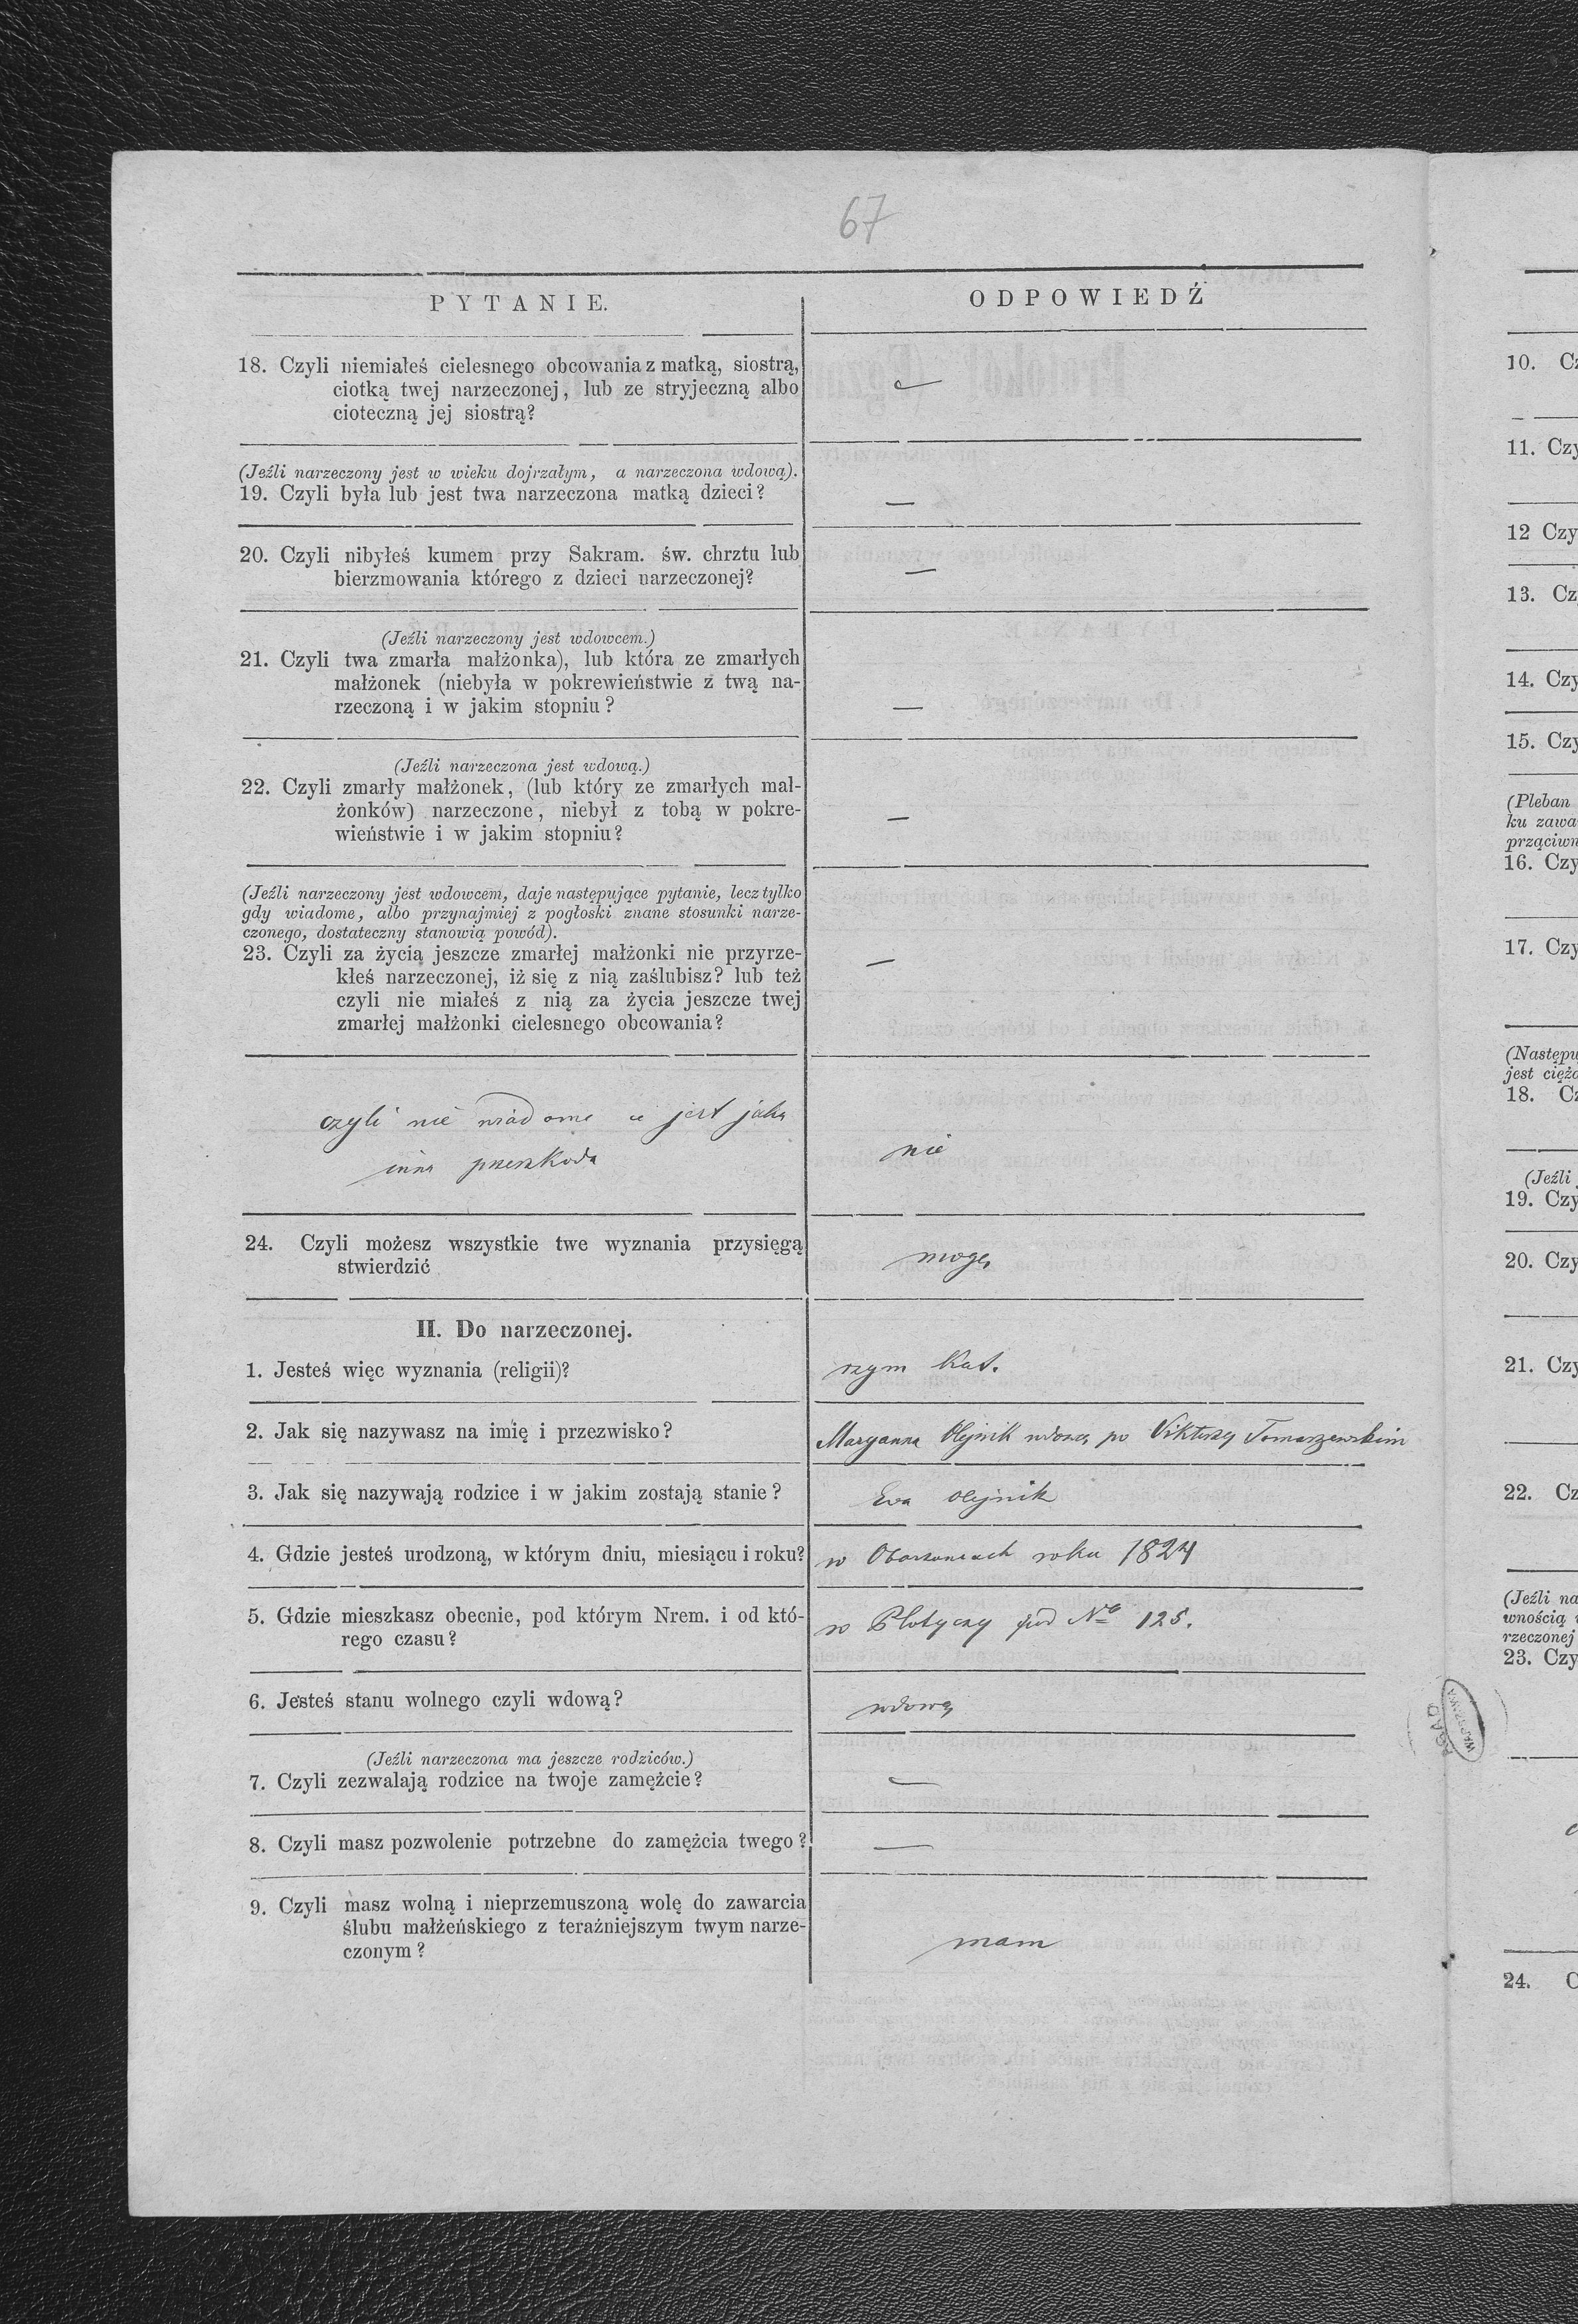 67
PYTANIE.
ODPOWIEDŹ
18. Czyli niemiałeś cielesnego obcowania z matką, siostrą,
ciotką twej narzeczonej, lub ze stryjeczną albo
cioteczną jej siostrą?
—
(Jeźli narzeczony jest w wieku dojrzałym, a narzeczona wdową).
19. Czyli była lub jest twa narzeczona matką dzieci?
—
20. Czyli nibyłeś kumem przy Sakram. św. chrztu lub
bierzmowania którego z dzieci narzeczonej?
—
(Jeźli narzeczony jest wdowcem.)
21. Czyli twa zmarła małżonka), lub która ze zmarłych
małżonek (niebyła w pokrewieństwie z twą na-
rzeczoną i w jakim stopniu?
—
(Jeźli narzeczona jest wdową.)
22. Czyli zmarły małżonek, (lub który ze zmarłych mał-
żonków) narzeczone, niebył z tobą w pokre-
wieństwie i w jakim stopniu?
—
(Jeźli narzeczony jest wdowcem, daje następujące pytanie, lecz tylko
gdy wiadome, albo przynajmiej z pogłoski znane stosunki narze-
czonego, dostateczny stanowią powód).
23. Czyli za życią jeszcze zmarłej małżonki nie przyrze-
kłeś narzeczonej, iż się z nią zaślubisz? lub też
czyli nie miałeś z nią za życia jeszcze twej
zmarłej małżonki cielesnego obcowania?
—
czyli nie wiadome jest jaka
inna przeszkoda
nie
24. Czyli możesz wszystkie twe wyznania przysięgą
stwierdzić
mogę
II. Do narzeczonej.
1. Jesteś więc wyznania (religii)?
rzym Kat.
2. Jak się nazywasz na imię i przezwisko?
Maryanna Olejnik wdowa po Tomaszewskim
3. Jak się nazywają rodzice i w jakim zostają stanie?
Ewa Olejnik
4. Gdzie jesteś urodzoną, w którym dniu, miesiącu i roku?
w roku 1824
5. Gdzie mieszkasz obecnie, pod którym Nrem. i od któ-
rego czasu?
w Płotyczy pod No 125.
6. Jesteś stanu wolnego czyli wdową?
wdową
(Jeźli narzeczona ma jeszcze rodziców.)
7. Czyli zezwalają rodzice na twoje zamężcie?
—
8. Czyli masz pozwolenie potrzebne do zamężcia twego?
—
9. Czyli masz wolną i nieprzemuszoną wolę do zawarcia
ślubu małżeńskiego z teraźniejszym twym narze-
czonym?
mam
10. Cz
11. Czy
12 Czy
13. Cz
14. Czy
15. Czy
(Pleban
ku zawa
prząciwn
16. Czy
17. Czy
(Następu
jest ciężo
18. Cz
(Jeźli
19. Czy
20. Czy
21. Czy
22. Cz
(Jeźli na
wnością
rzeczonej
23. Czy
24. C
AGAD
WARSZAWA